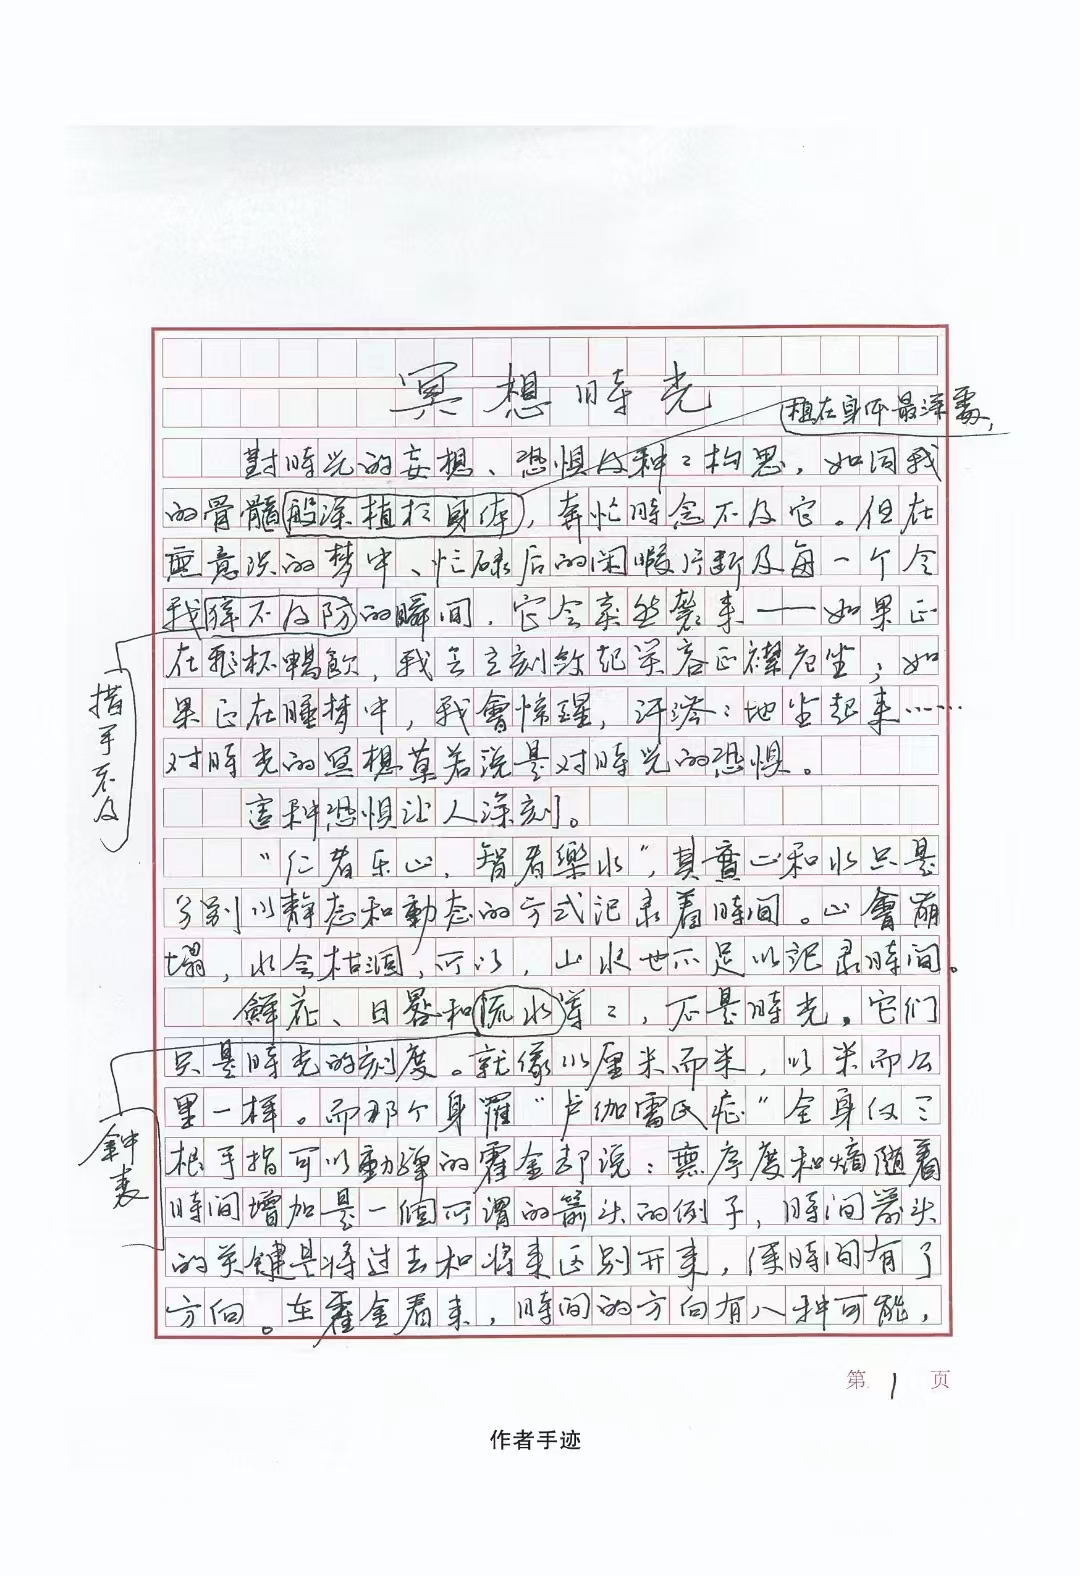 冥想時光
植在身体最深處，
對時光的妄想、恐惧及种〻构思，如同我
的骨髓般深植於身体，奔忙時念不及它。但在
無意识的梦中、忙碌后的闲暇片断及每一个令
我猝不及防的瞬间，它会突然襲来——如果正
在飛杯暢飲，我会立刻敛起笑容正襟危坐；如
果正在睡梦中，我會惊醒，汗涔〻地坐起来……
措手不及
对時光的冥想莫若说是对時光的恐惧。
這种恐惧让人深刻。
“仁者乐山，智者樂水”，其實山和水只是
分别以静态和動态的方式记录着時间。山會崩
塌，水会枯涸，所以，山水也不足以记录時间。
鮮花、日晷和流水等〻，不是時光，它们
只是時光的刻度。就像以厘米而米，以米而公
里一样。而那个身罹“卢伽雷氏症”全身仅三
鈡表
根手指可以動弹的霍金却说：無序度和熵随着
時间增加是一個可谓的箭头的例子，時间箭头
的关键是将过去和将来区别开来，使時间有了
方向。在霍金看来，時间的方向有八种可能，
第1页
作者手迹